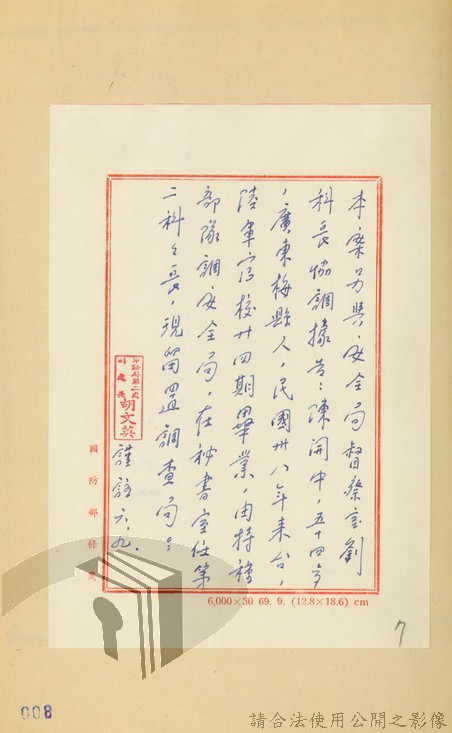 本案另與安全局督察室劉
科長協調據告：陳開中，五十四歲
，廣東梅縣人，民國卅八年來台，
陸軍官校廿四期畢業，由特種
部隊調安全局，在秘書室任第
二科科長，現留置調查局。
軍法局第二處
副處長
胡文英
謹註六、九、
國防部條
6,000×50 69. 9. (12.8×18.6) cm
7
008
請合法使用公開之影像